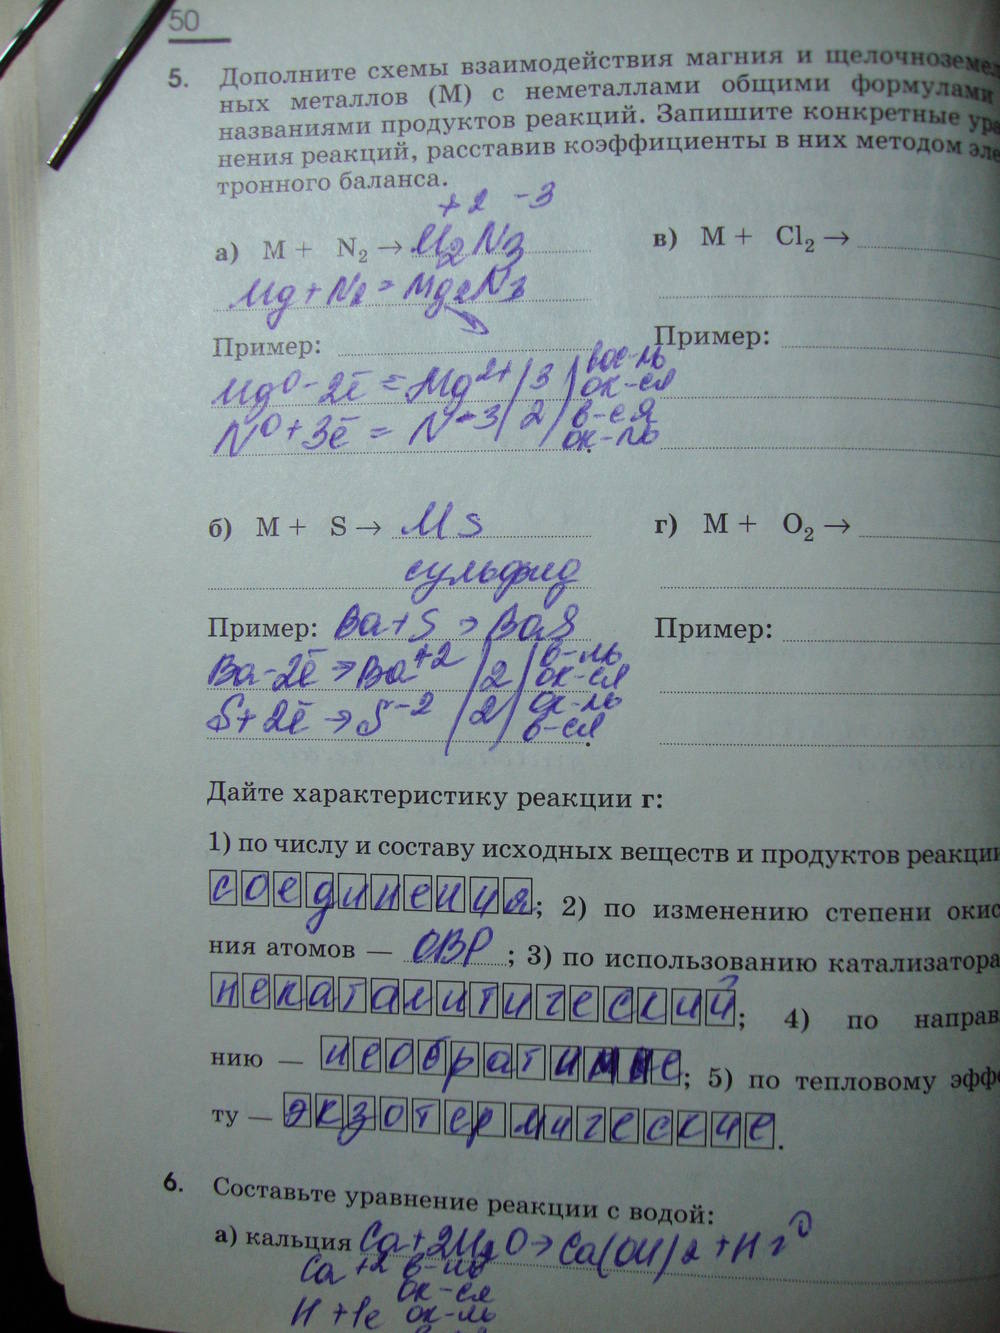 50
5. Дополните схемы взаимодействия магния и щелочнозе
ных металлов (М) с неметаллами общими формулами
названиями продуктов реакций. Запишите конкретные ура
нения реакций, расставив коэффициенты в них методом эле
тронного баланса.
+2 -3
а) M + N₂ → M₂N₃
Mg + N₂ = Mg₂N₃
Пример:
Mg⁰ - 2ē = Mg²⁺ | 3 | вос-ль
ок-ся
N⁰ + 3ē = N⁻³ | 2 | в-ся
ок-ль
в) M + Cl₂ →
Пример:
б) M + S → MS
сульфид
Пример: Ba + S → BaS
Ba - 2ē → Ba⁺² | 2 | в-ль
ок-ся
S + 2ē → S⁻² | 2 | ок-ль
в-ся
г) M + O₂ →
Пример:
Дайте характеристику реакции г:
1) по числу и составу исходных веществ и продуктов реакции
соединения; 2) по изменению степени окис
ния атомов — ОВР; 3) по использованию катализатора
некаталитический; 4) по направ
нию — необратимые; 5) по тепловому эфф
ту — экзотермические.
6. Составьте уравнение реакции с водой:
а) кальция Ca + 2H₂O → Ca(OH)₂ + H₂⁰
Ca⁺² в-ль
ок-ся
H + 1e ок-ль